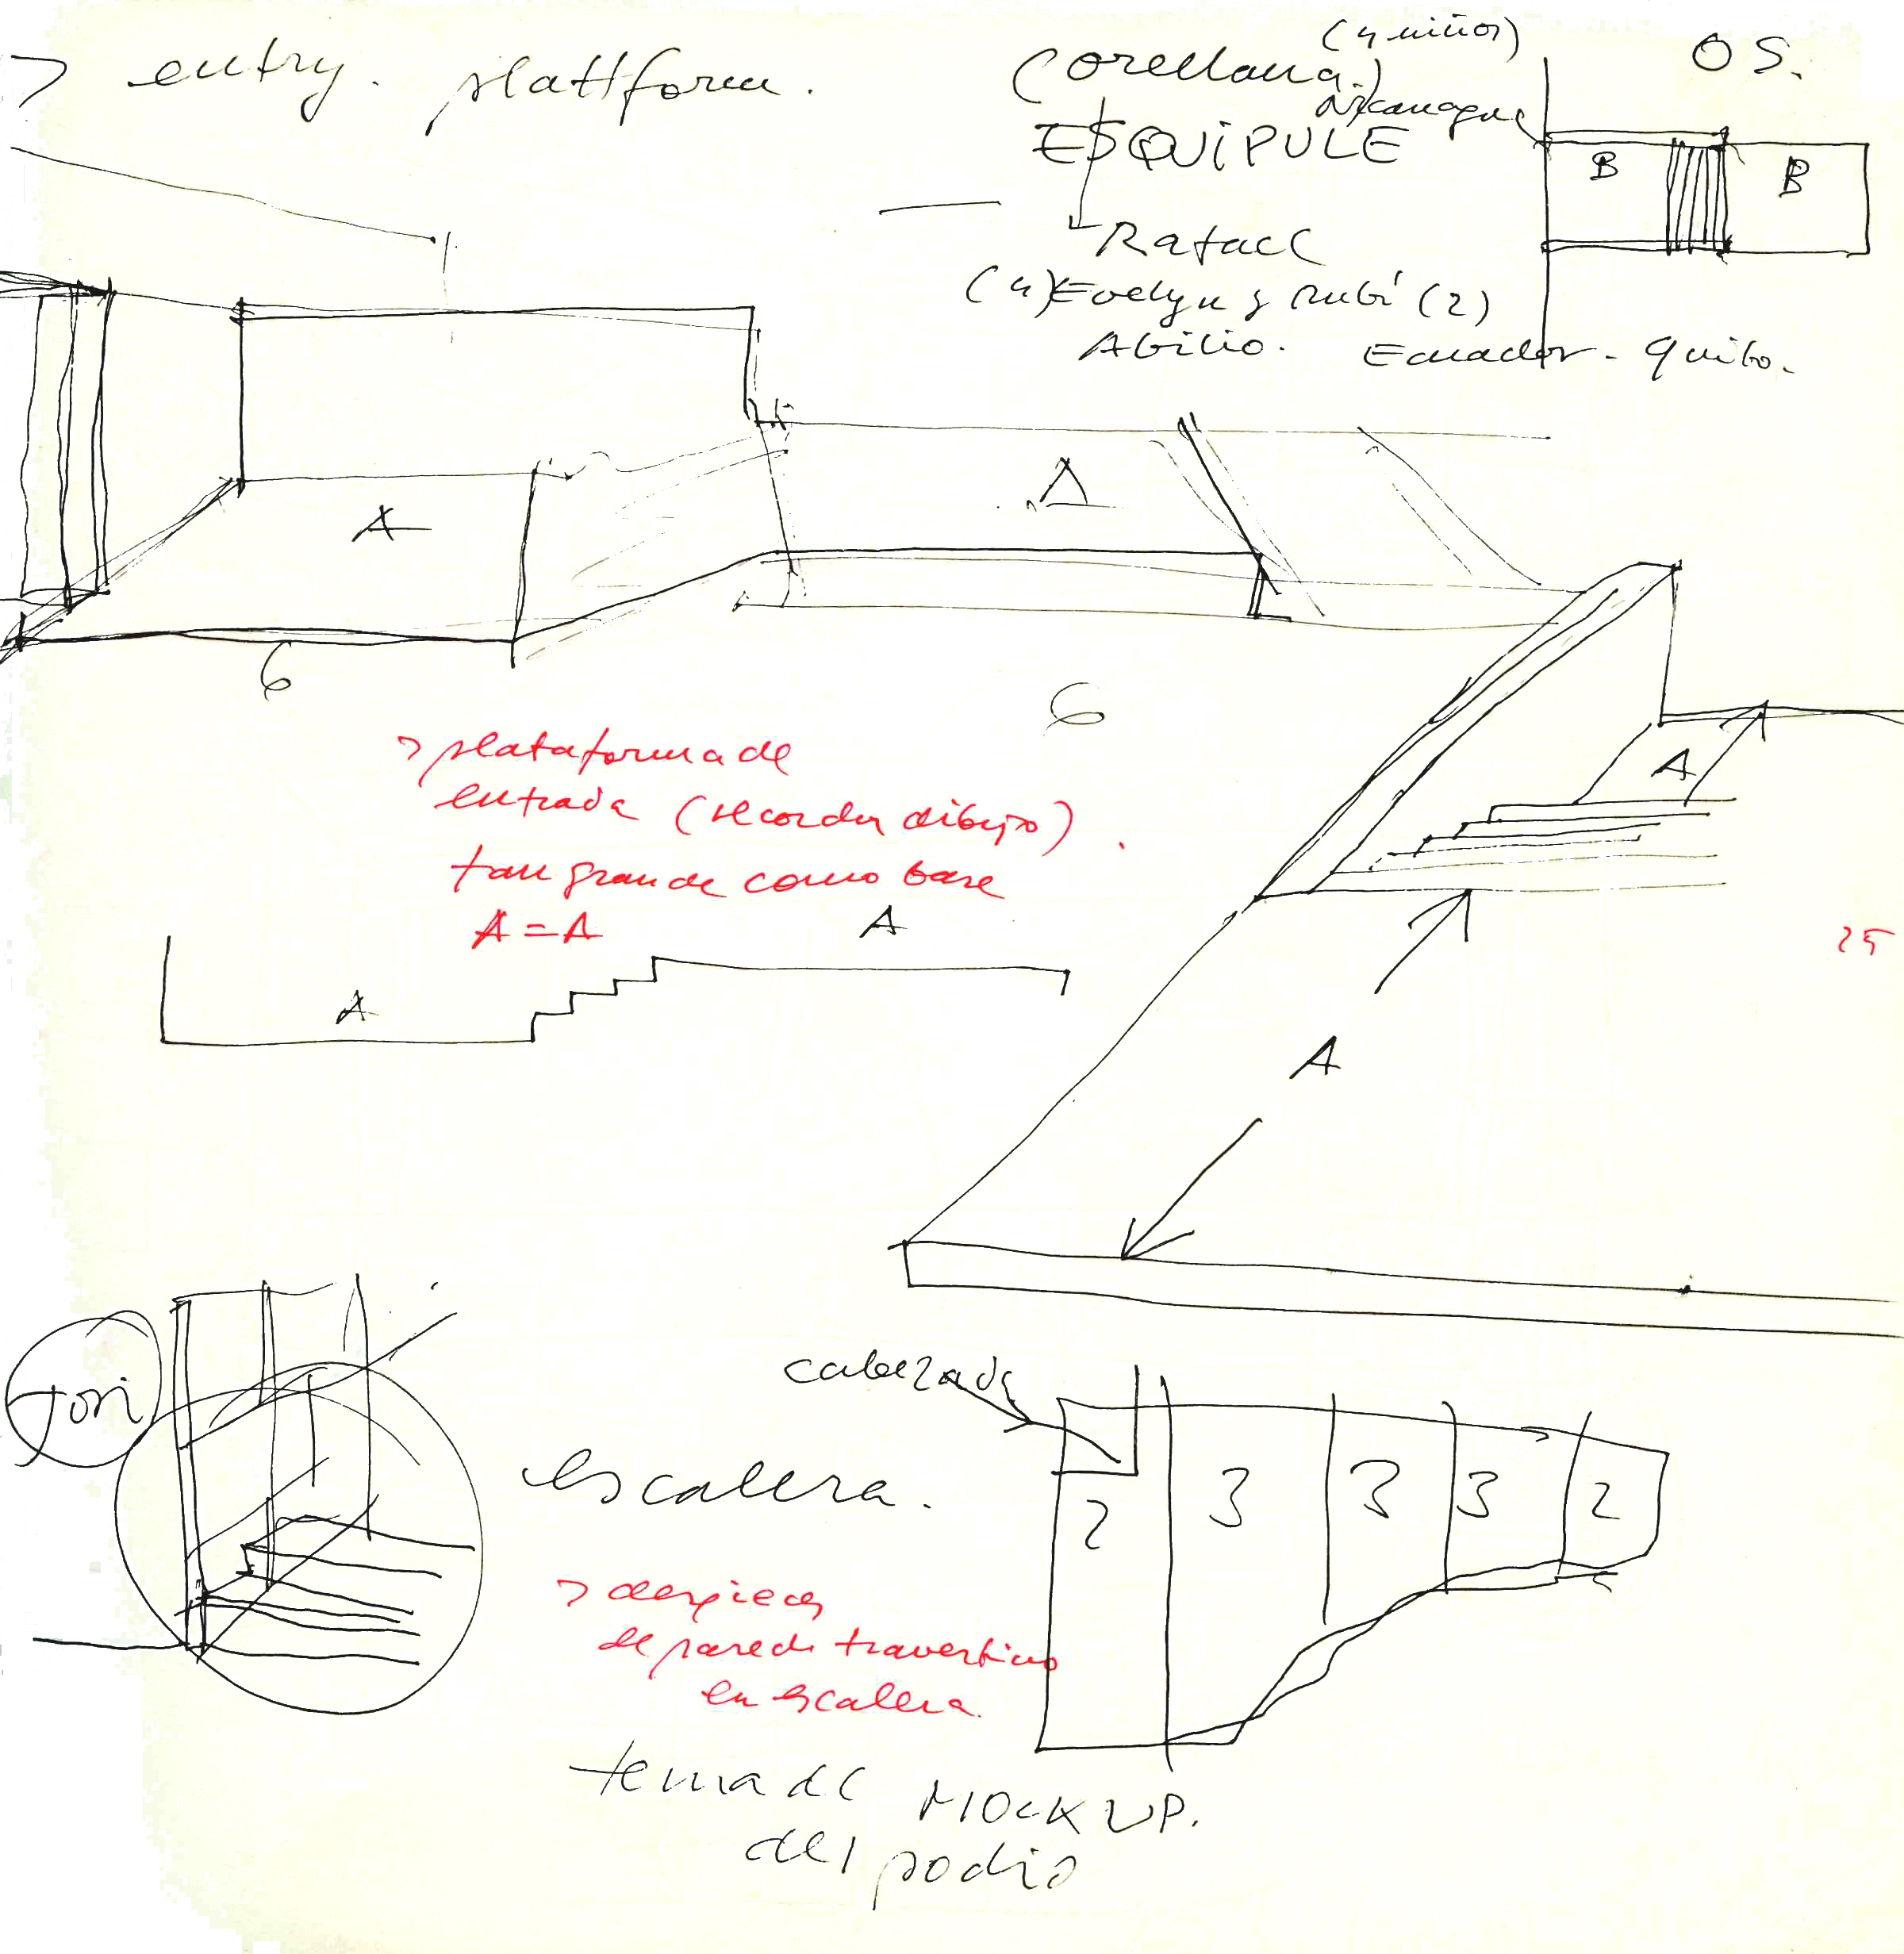 > entry. plattform.
(4 niños)
OS.
(orellana.)
ESQUIPULE
B
B
Rafael
(4) Evelyn y Rubí (2)
Abilio. Ecuador - quito.
A
A
6
6
> plataforma de
entrada (recordar dibujo)
tan grande como base
A = A
A
A
A
A
25
Jori
cabezada
escalera.
2 3 3 3 2
> despiece
de pared travertino
en escalera.
tema de MOCK UP.
del podio